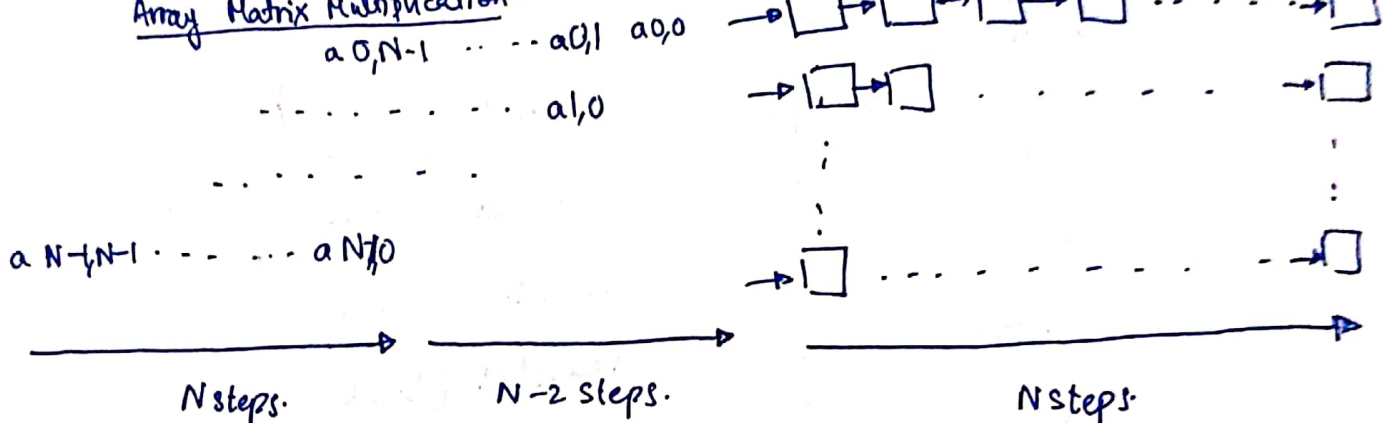 Array Matrix Multiplication
a 0,N-1 .. ... a0,1 a0,0
- - . . - . - . . a1,0
- . . . - - .
a N-1,N-1 . - - - ... a N-1,0
N steps. N-2 steps. N steps.